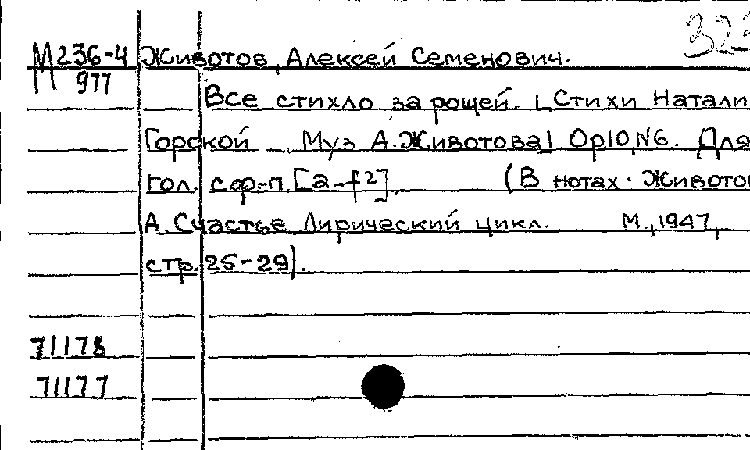 323
М236-4 Животов, Алексей Семенович.
М 977
Все стихло за рощей. [Стихи Натали
Горской - Муз А. Животова] Op10,N6. Для
гол. с ф-п. [a-f2]. (В нотах. Животов
А. Счастье Лирический цикл. М., 1947,
стр. 25-29).
71178
71177